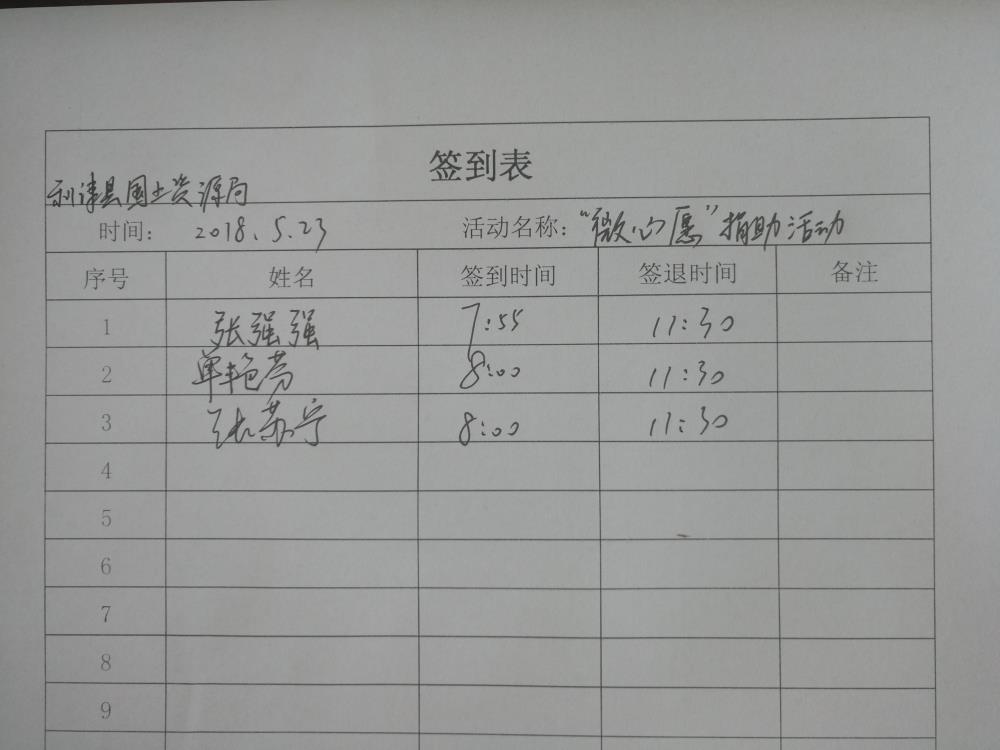 签到表
利津县国土资源局
时间： 2018.5.23 活动名称："微心愿"捐助活动
序号 姓名 签到时间 签退时间 备注
1 张强强 7:55 11:30
2 单艳芳 8:00 11:30
3 张苏宁 8:00 11:30
4
5
6
7
8
9